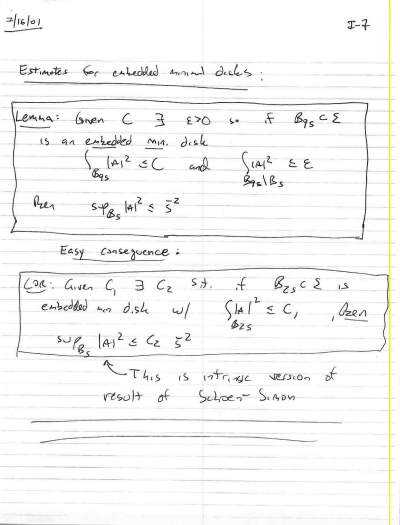 2/16/01
I-7
Estimates for embedded minimal disks:
Lemma: Given C ∃ ε>0 so if B_{9s} ⊂ Σ
is an embedded min. disk
∫_{B_{9s}} |A|² ≤ C and ∫_{B_{9s}\B_s} |A|² ≤ ε
then sup_{B_s} |A|² ≤ s^{-2}
Easy consequence:
COR: Given C₁ ∃ C₂ s.t. if B_{2s} ⊂ Σ is
embedded min disk w/ ∫_{B_{2s}} |A|² ≤ C₁, then
sup_{B_s} |A|² ≤ C₂ s^{-2}
This is intrinsic version of
result of Schoen-Simon